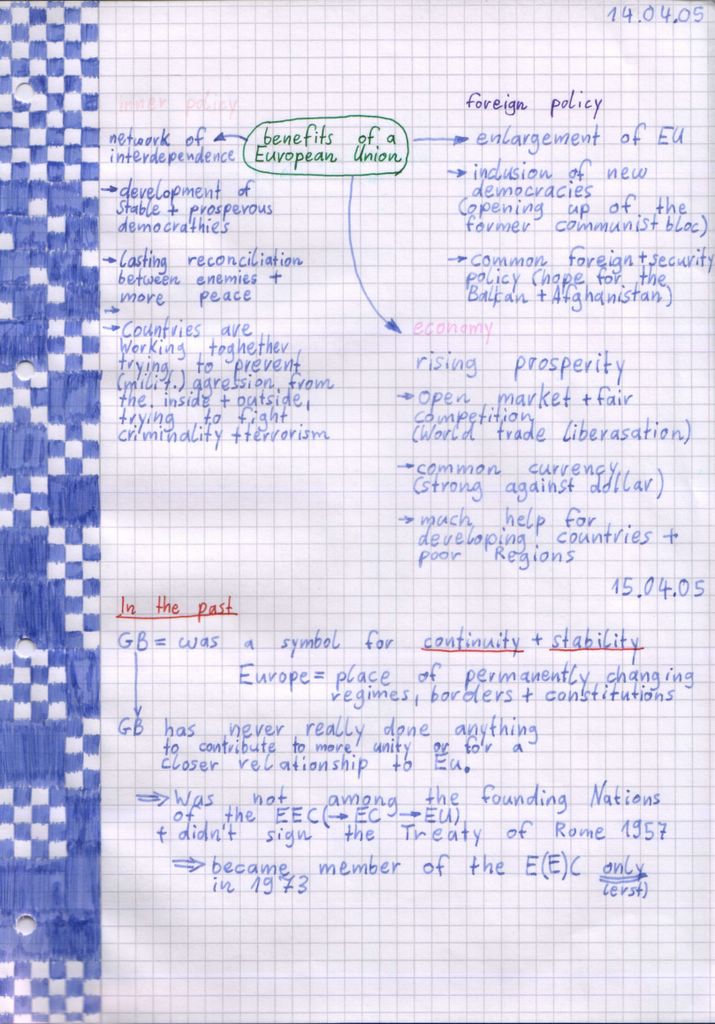 14.04.05
inner policy
network of
interdependence
→ development of
stable + prosperous
democrathies
→ Lasting reconciliation
between enemies +
more peace
→
→ Countries are
working toghether
trying to prevent
(milit.) agression from
the inside + outside,
trying to fight
criminality + terrorism
benefits of a
European Union
foreign policy
→ enlargement of EU
→ inclusion of new
democracies
(opening up of the
former communist bloc)
→ common foreign + security
policy (hope for the
Balkan + Afghanistan)
economy
rising prosperity
→ open market + fair
competition
(World trade liberasation)
→ common currency
(strong against dollar)
→ much help for
developing countries +
poor Regions
15.04.05
In the past
GB = was a symbol for continuity + stability
Europe = place of permanently changing
regimes, borders + constitutions
GB has never really done anything
to contribute to more unity or for a
closer relationship to Eu.
⇒ Was not among the founding Nations
of the EEC (→ EC → EU)
+ didn't sign the Treaty of Rome 1957
⇒ became member of the E(E)C only
in 1973 (erst)